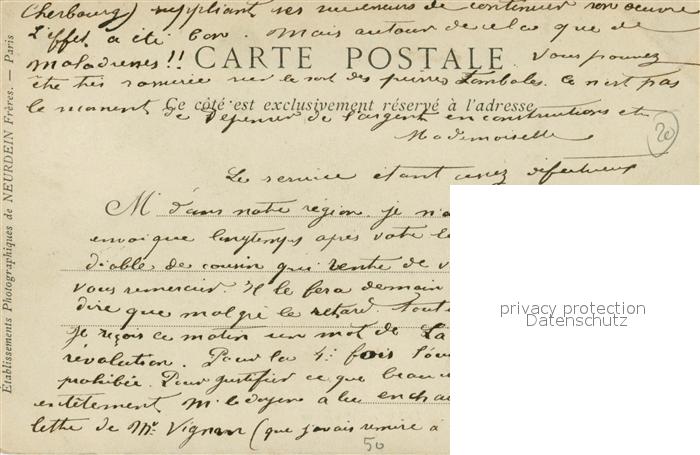 Cherbourg) suppliant ses receveurs de continuer son œuvre
L'effet a été bon. Mais autour de cela que de
maladresses!! CARTE POSTALE Vous pouvez
être très sur le sort des Lambales. Ce n'est pas
le moment de dépenser de l'argent en constructions etc
Ce côté est exclusivement réservé à l'adresse
Mademoiselle
20
Le service étant assez défectueux
M dans notre région. je n'a
envoi que longtemps après votre le
diable de cousin qui vente de v
vous remercier. Il le fera demain
dire que malgré le retard. Tout
je reçois ce matin un mot de La
révolution. Pour la 4e fois l'ou
prohibée. Pour justifier ce que beauc
entêtement M. le doyen a lu en chai
lettre de Mr Vignon (que j'avais remise à
50
Établissements Photographiques de NEURDEIN Frères. — Paris
privacy protection
Datenschutz